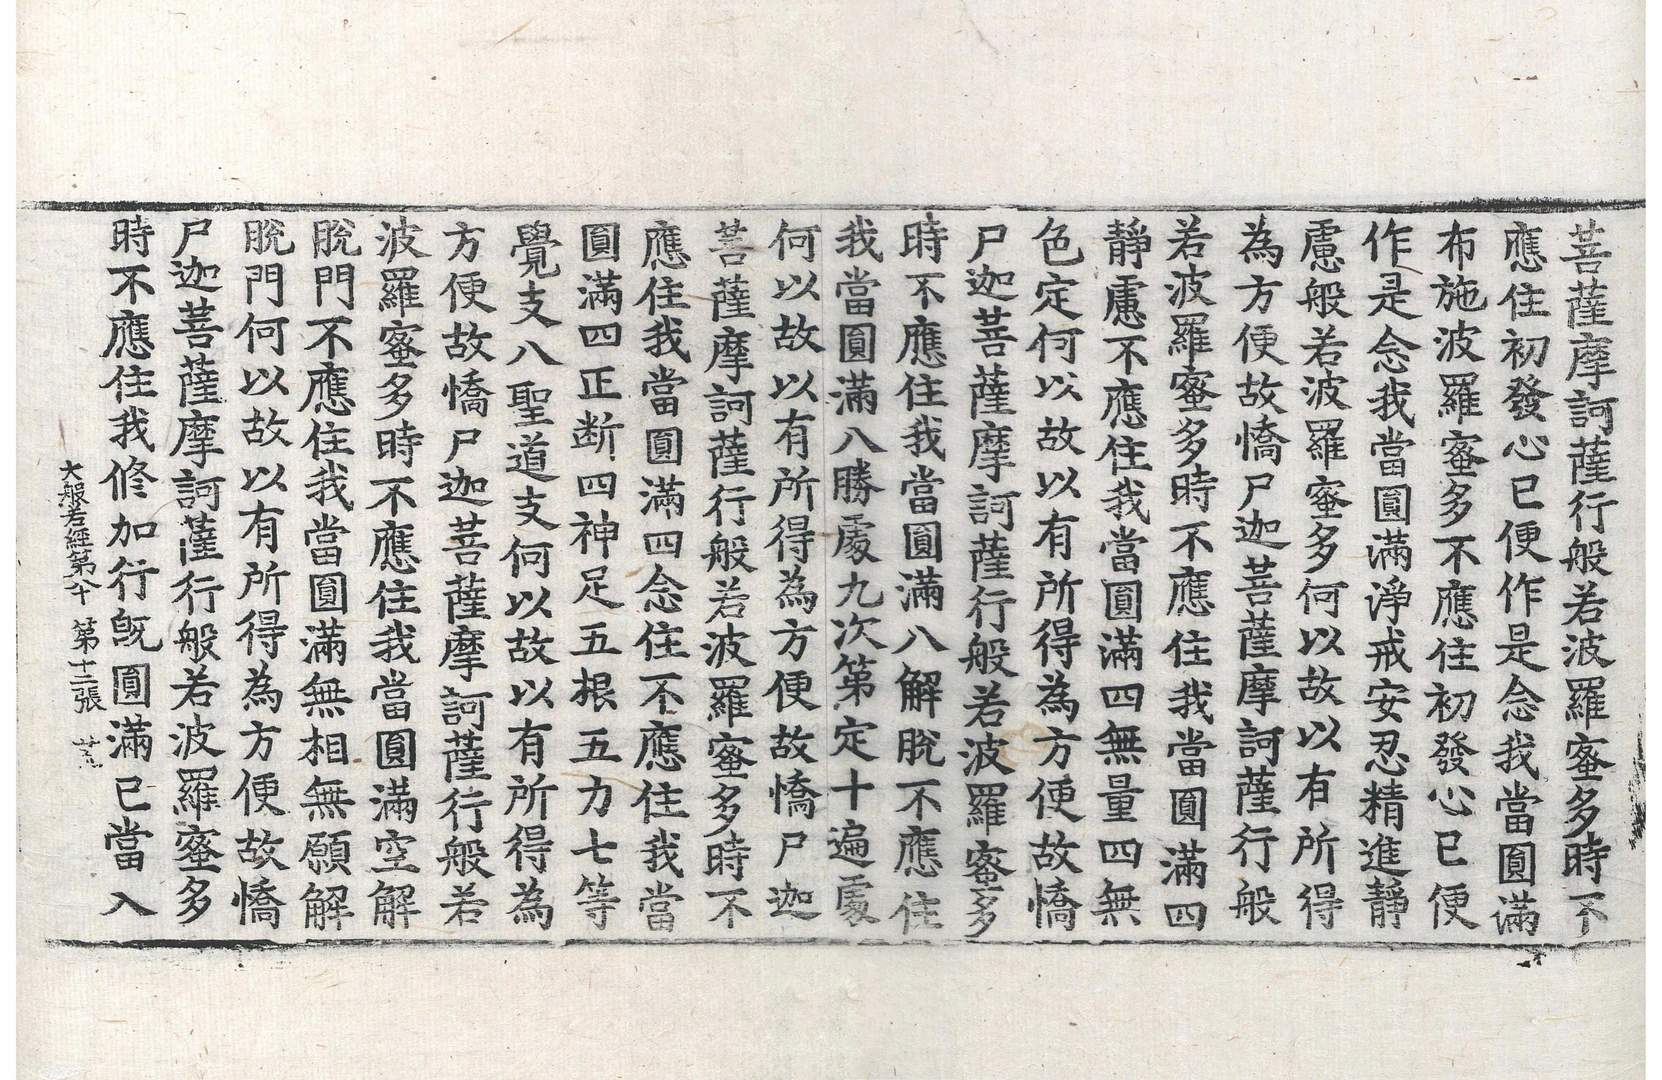 菩薩摩訶薩行般若波羅蜜多時不
應住初發心已便作是念我當圓滿
布施波羅蜜多不應住初發心已便
作是念我當圓滿淨戒安忍精進靜
慮般若波羅蜜多何以故以有所得
為方便故憍尸迦菩薩摩訶薩行般
若波羅蜜多時不應住我當圓滿四
靜慮不應住我當圓滿四無量四無
色定何以故以有所得為方便故憍
尸迦菩薩摩訶薩行般若波羅蜜多
時不應住我當圓滿八解脫不應住
我當圓滿八勝處九次第定十遍處
何以故以有所得為方便故憍尸迦
菩薩摩訶薩行般若波羅蜜多時不
應住我當圓滿四念住不應住我當
圓滿四正断四神足五根五力七等
覺支八聖道支何以故以有所得為
方便故憍尸迦菩薩摩訶薩行般若
波羅蜜多時不應住我當圓滿空解
脫門不應住我當圓滿無相無願解
脫門何以故以有所得為方便故憍
尸迦菩薩摩訶薩行般若波羅蜜多
時不應住我修加行旣圓滿已當入
大般若經第八十 第十二張